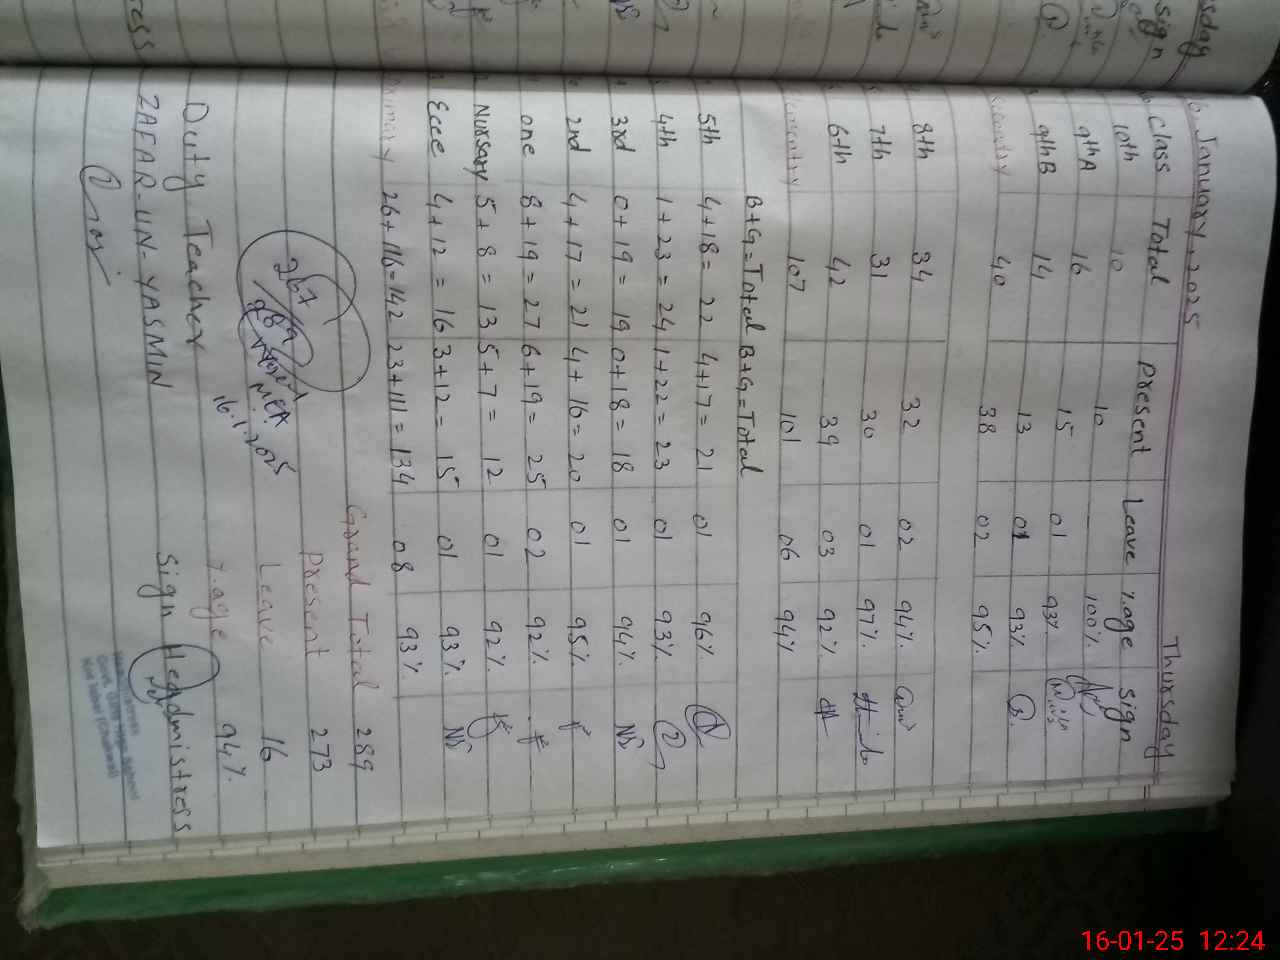 6. January, 2025 Thursday
Class Total Present Leave %age Sign
10th 10 10 100%
9thA 16 15 01 93%
9thB 14 13 01 93%
40 38 02 95%
8th 34 32 02 94%
7th 31 30 01 97%
6th 42 39 03 92%
107 101 06 94%
B+G=Total B+G=Total
5th 4+18= 22 4+17= 21 01 96%
4th 1+23= 24 1+22= 23 01 93%
3rd 0+19= 19 0+18= 18 01 94% NS
2nd 4+17= 21 4+16= 20 01 95%
one 8+19= 27 6+19= 25 02 92%
Nursary 5+8= 13 5+7= 12 01 92%
Ecce 4+12= 16 3+12= 15 01 93% NS
26+116=142 23+111= 134 08 93%
Grand Total 289
Present 273
Leave 16
%age 94%
267
289
MEA
16.1.2025
Duty Teacher Sign Headmistress
ZAFAR-UN-YASMIN
16-01-25 12:24